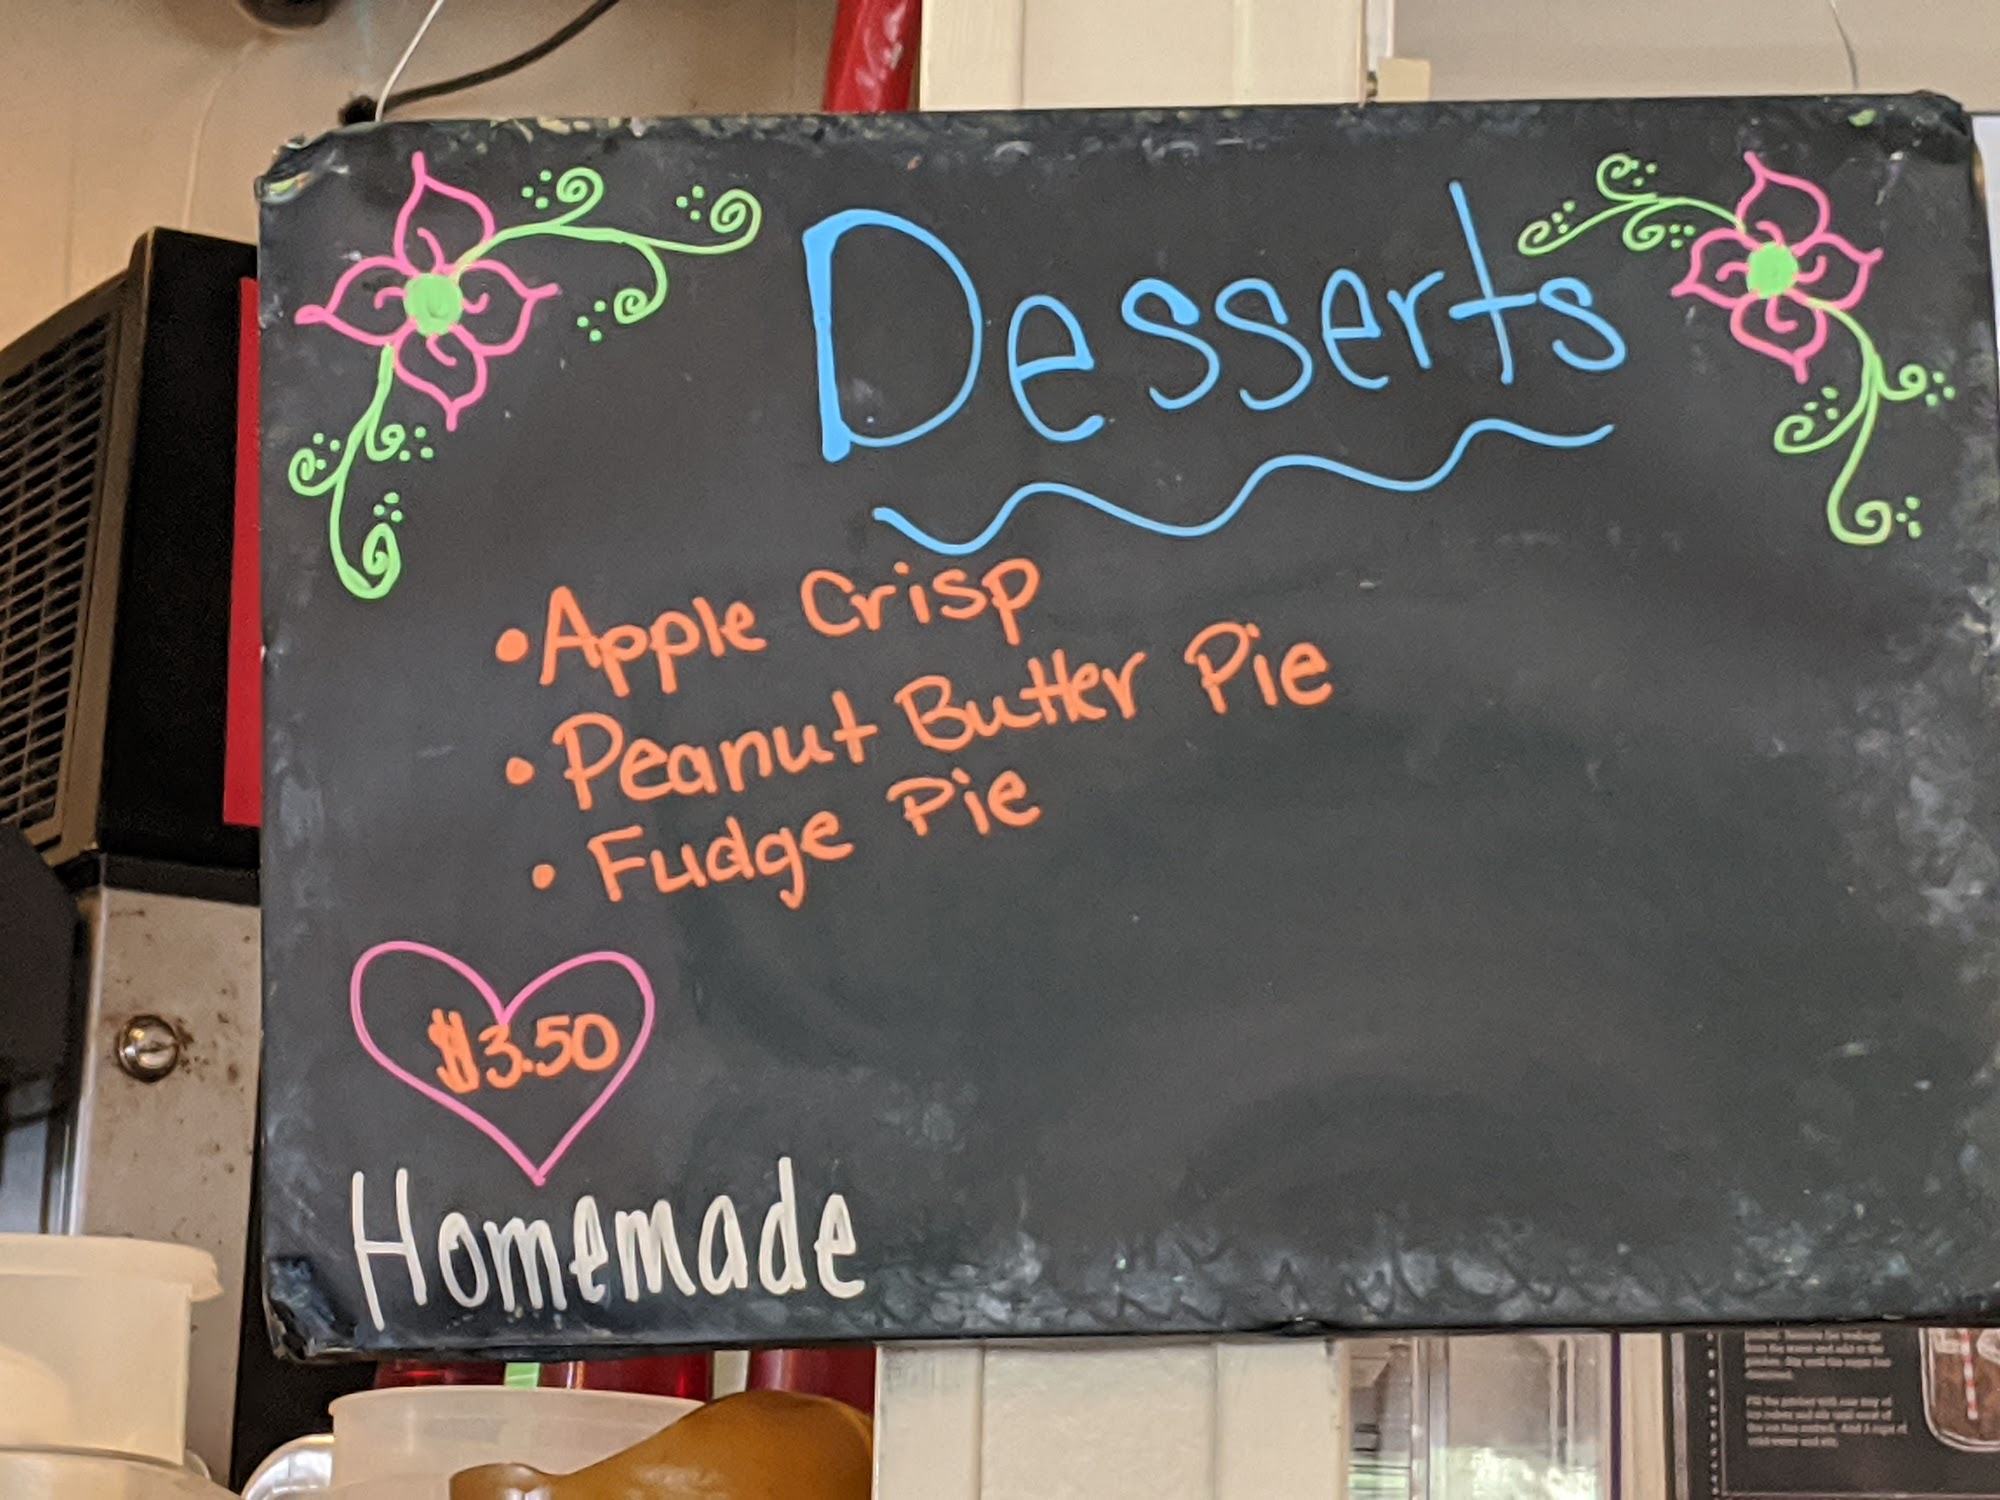 Desserts
• Apple Crisp
• Peanut Butter Pie
• Fudge Pie
$3.50
Homemade